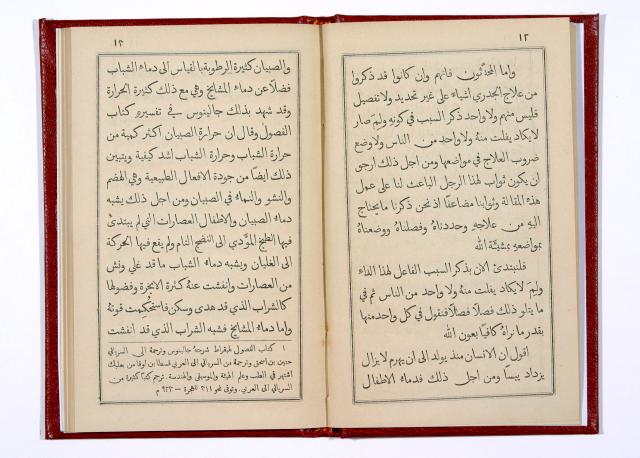 ١٢
واما المحدثون فانهم وان كانوا قد ذكروا
من علاج الجدري اشياء على غير تحديد ولا تفصيل
فليس منهم ولا واحد ذكر السبب في كونهِ ولمَ صار
لا يكاد يفلت منهُ ولا واحد من الناس ولا وضع
ضروب العلاج في مواضعها ومن اجل ذلك ارجو
ان يكون ثواب لهذا الرجل الباعث لنا على عمل
هذه المقالة وثوابنا مضاعفًا اذ نحن ذكرنا ما يحتاج
اليهِ من علاجهِ وحددناهُ وفصلناهُ ووضعناهُ
بمواضعهِ بمشيئة الله
فلنبتدئ الان بذكر السبب الفاعل لهذا الداء
ولمَ لا يكاد يفلت منهُ ولا واحد من الناس ثم في
ما يتلو ذلك فصلًا فصلًا فنقول في كل واحد منها
بقدر ما نراهُ كافيًا بعون الله
اقول ان الانسان منذ يولد الى ان يهرم لا يزال
يزداد يبسًا ومن اجل ذلك فدماء الاطفال
١٣
والصبيان كثيرة الرطوبة بالقياس الى دماء الشباب
فضلًا عن دماء المشايخ وهي مع ذلك كثيرة الحرارة
وقد شهد بذلك جالينوس في تفسيره كتاب
الفصول وقال ان حرارة الصبيان اكثر كمية من
حرارة الشباب وحرارة الشباب اشد كيفية ويتبين
ذلك ايضًا من جودة الافعال الطبيعية وهي الهضم
والنشو والنماء في الصبيان ومن اجل ذلك يشبه
دماء الصبيان والاطفال العصارات التي لم يبتدئ
فيها الطبخ المؤدي الى النضج التام ولم يقع فيها الحركة
الى الغليان ويشبه دماء الشباب ما قد غلي ونش
من العصارات وانفشت عنهُ كثرة الابخرة وفضولها
كالشراب الذي قد هدى وسكن فاستحكمت قوتهُ
واما دماء المشايخ فشبه الشراب الذي قد انفشت
١ كتاب الفصول لبقراط شرحهُ جالينوس وترجمهُ الى السرياني
حنين بن اسحق وترجمهُ من السرياني الى العربي قسطا بن لوقا من بعلبك
اشتهر في الطب وعلم الهيئة والموسيقى والهندسة. ترجم كتبًا كثيرة من
السرياني الى العربي. وتوفى نحو ٣١١ للهجرة – ٩٢٣ م